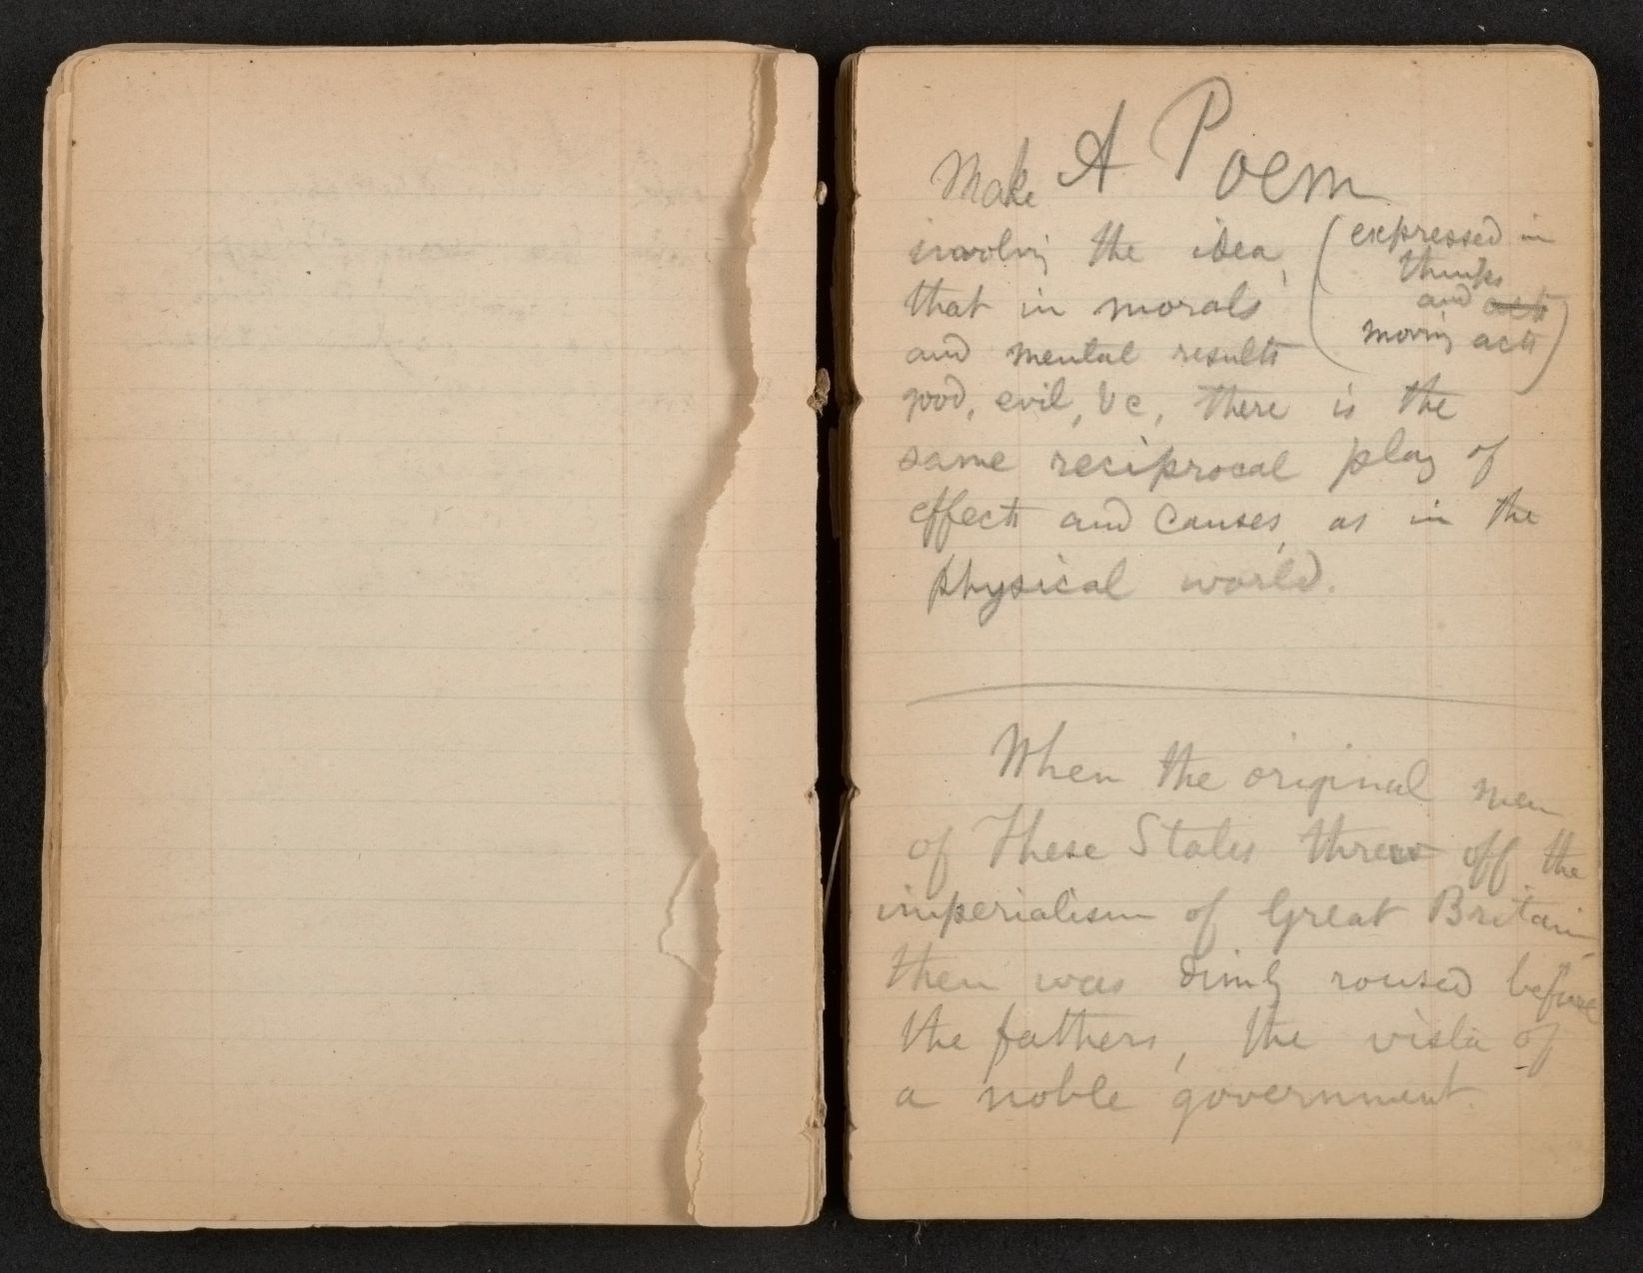 Make A Poem
involving the idea, (expressed in
things
that in morals and acts
and mental results moving acts)
good, evil, &c, there is the
same reciprocal play of
effects and causes, as in the
physical world.
When the original men
of These States threw off the
imperialism of Great Britain,
then was dimly roused before
the fathers, the vista of
a noble government.